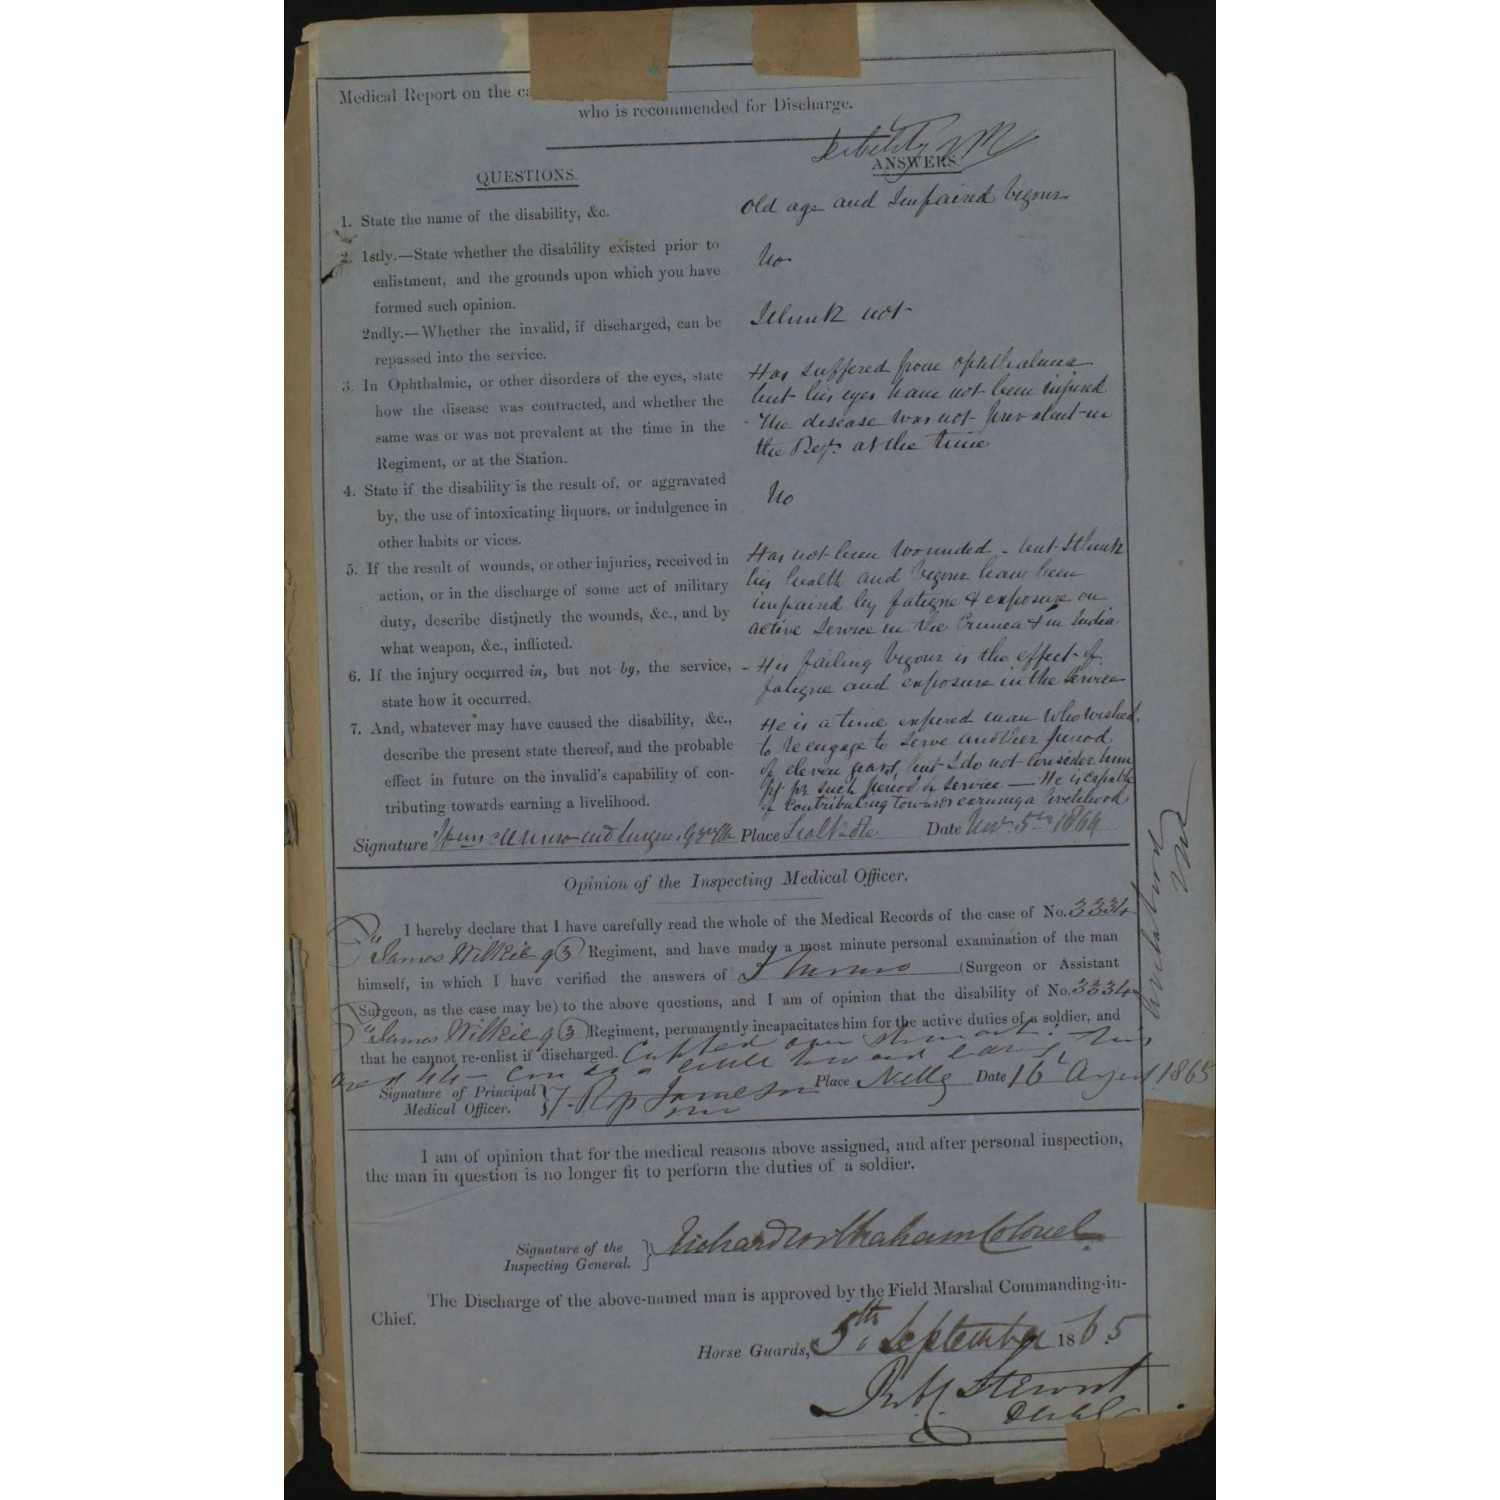 Medical Report on the ca
who is recommended for Discharge.
Debility
QUESTIONS.
ANSWERS
1. State the name of the disability, &c.
Old age and Impaired Vigour
2. 1stly.—State whether the disability existed prior to
enlistment, and the grounds upon which you have
formed such opinion.
No
2ndly.—Whether the invalid, if discharged, can be
repassed into the service.
I think not
3. In Ophthalmic, or other disorders of the eyes, state
how the disease was contracted, and whether the
same was or was not prevalent at the time in the
Regiment, or at the Station.
Has suffered from Ophthalmia
but his eyes have not been injured
The disease was not prevalent in
the Regt. at the time
4. State if the disability is the result of, or aggravated
by, the use of intoxicating liquors, or indulgence in
other habits or vices.
No
5. If the result of wounds, or other injuries, received in
action, or in the discharge of some act of military
duty, describe distinctly the wounds, &c., and by
what weapon, &c., inflicted.
Has not been wounded - but I think
his health and vigour have been
impaired by fatigue & exposure on
active service in the Crimea & in India
6. If the injury occurred in, but not by, the service,
state how it occurred.
- His failing vigour is the effect of
fatigue and exposure in the service
7. And, whatever may have caused the disability, &c.,
describe the present state thereof, and the probable
effect in future on the invalid's capability of con-
tributing towards earning a livelihood.
He is a time expired man who wished
to reengage to serve another period
of eleven years, but I do not consider him
fit for such period of service — He is capable
of contributing towards earning a livelihood
Signature Wm Munro Surgeon 93rd Place Sealkote Date Novr 5th 1864
Opinion of the Inspecting Medical Officer.
I hereby declare that I have carefully read the whole of the Medical Records of the case of No. 3334
James Wilkie 93 Regiment, and have made a most minute personal examination of the man
himself, in which I have verified the answers of Munro (Surgeon or Assistant
Surgeon, as the case may be) to the above questions, and I am of opinion that the disability of No. 3334
James Wilkie 93 Regiment, permanently incapacitates him for the active duties of a soldier, and
that he cannot re-enlist if discharged.
aged 44 - can do a little toward
Signature of Principal
Medical Officer. } Jameson Place Netley Date 16 August 1865
I am of opinion that for the medical reasons above assigned, and after personal inspection,
the man in question is no longer fit to perform the duties of a soldier.
Signature of the
Inspecting General. } Richard Wilbraham Colonel
The Discharge of the above-named man is approved by the Field Marshal Commanding-in-
Chief.
Horse Guards, 5th September 1865
Stewart